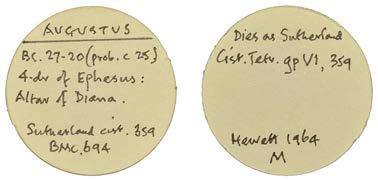 AUGUSTUS
BC. 27-20 (prob. c 25)
4-dr of Ephesus:
Altar of Diana.
Sutherland cist. 359
BMC. 694
Dies as Sutherland
Cist. Tetr. gp VI, 359
Hewett 1964
M